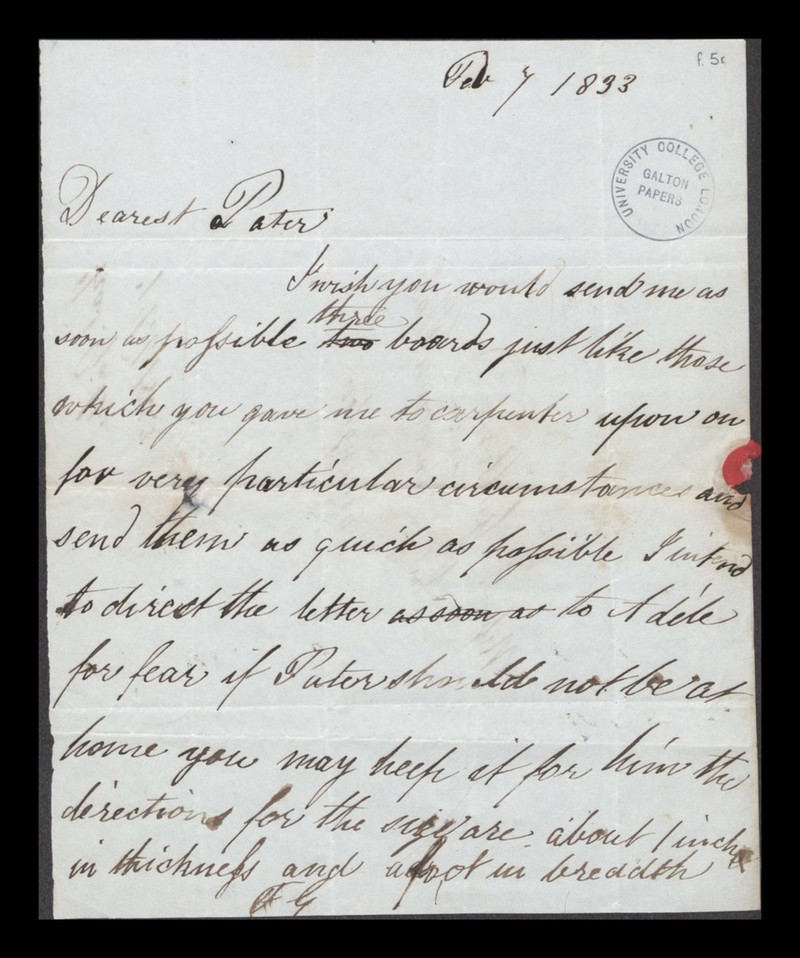 f. 5r
Feb 7 1833
UNIVERSITY COLLEGE LONDON
GALTON
PAPERS
Dearest Pater
I wish you would send me as
three
soon as possible two boards just like those
which you gave me to carpenter upon on
for very particular circumstances and
send them as quick as possible I intend
to direct the letter as soon as to Adéle
for fear if Pater should not be at
home you may keep it for him the
directions for the size are about 1 inch
in thickness and a foot in breadth
F G